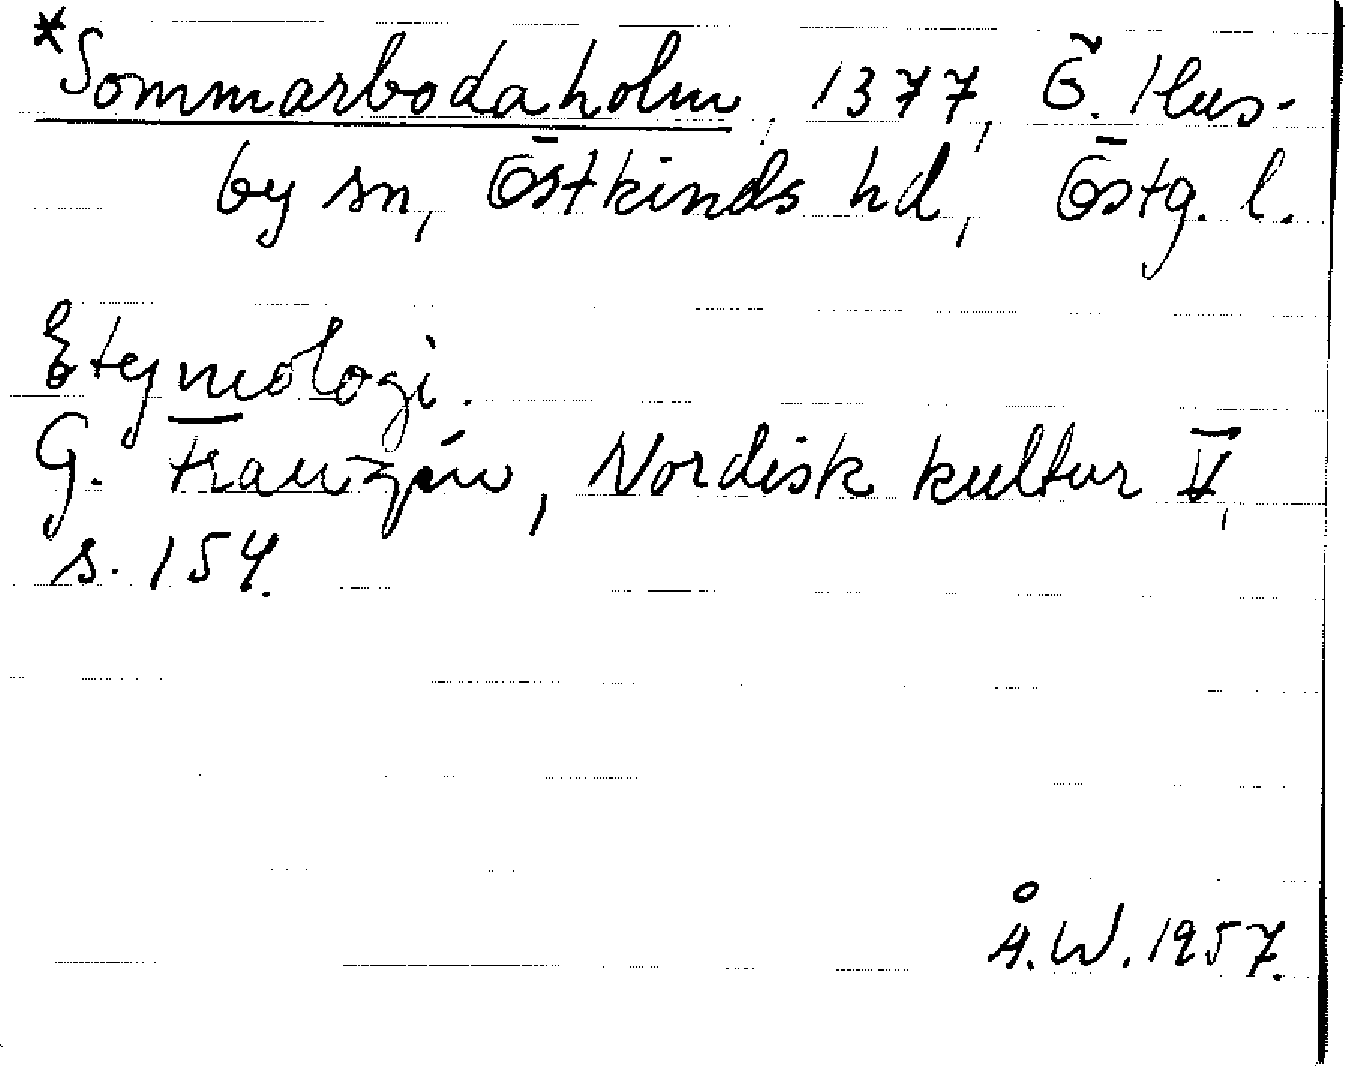 *Sommarbodaholm, 1377, Ö. Hus-
by sn, Östkinds hd, Östg. l.
Etymologi.
G. Franzén, Nordisk kultur V,
s. 154.
Å.W. 1957.